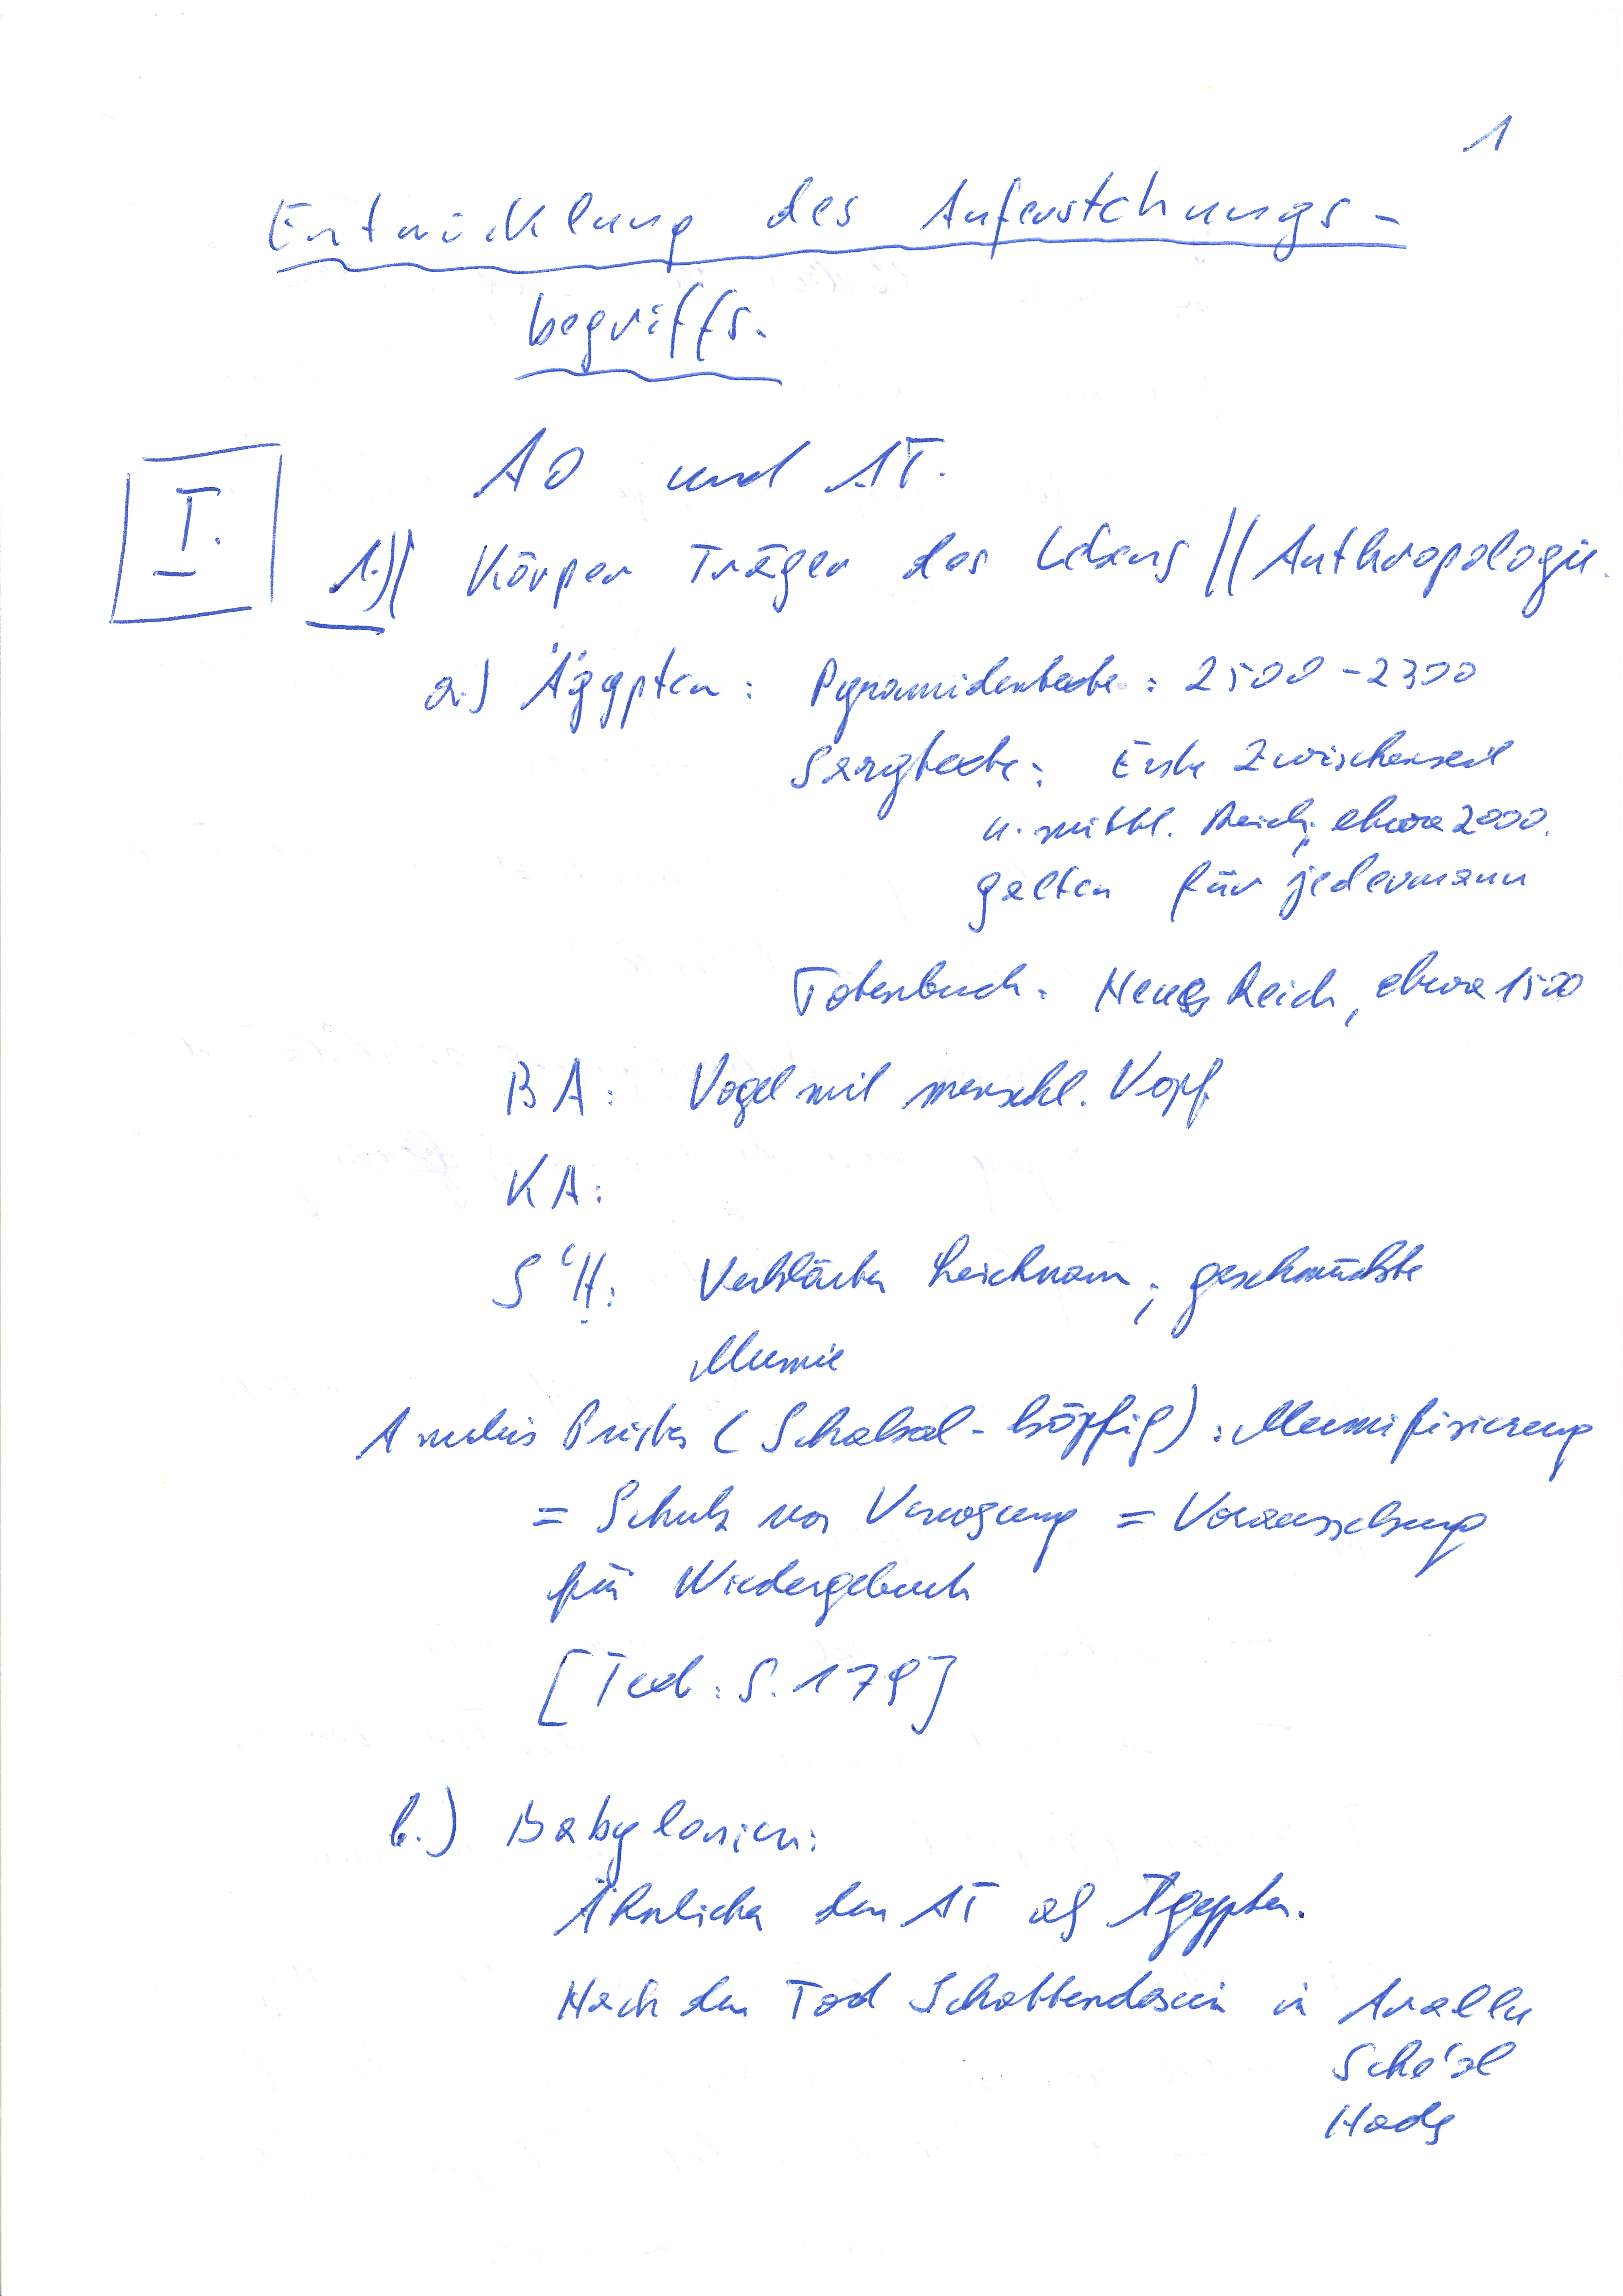 1
Entwicklung des Auferstehungs-
begriffs.
AO und AT.
I.
1.) Körper Träger des Lebens // Anthropologie.
a.) Ägypten: Pyramidentexte: 2500-2300
Sargtexte: Erste Zwischenzeit
u. mittl. Reich, etwa 2000.
gelten für jedermann
Totenbuch: Neues Reich, etwa 1500
BA: Vogel mit menschl. Kopf
KA:
S'Ḥ: Verklärter Leichnam; geschmückte
Mumie
Anubis Priester (Schakal-köpfig): Mumifizierung
= Schutz vor Verwesung = Voraussetzung
für Wiedergeburt
[Text: S. 179]
b.) Babylonien:
Ähnlicher dem AT als Ägypten.
Nach dem Tod Schattendasein in Arallu
Sche'ol
Hades